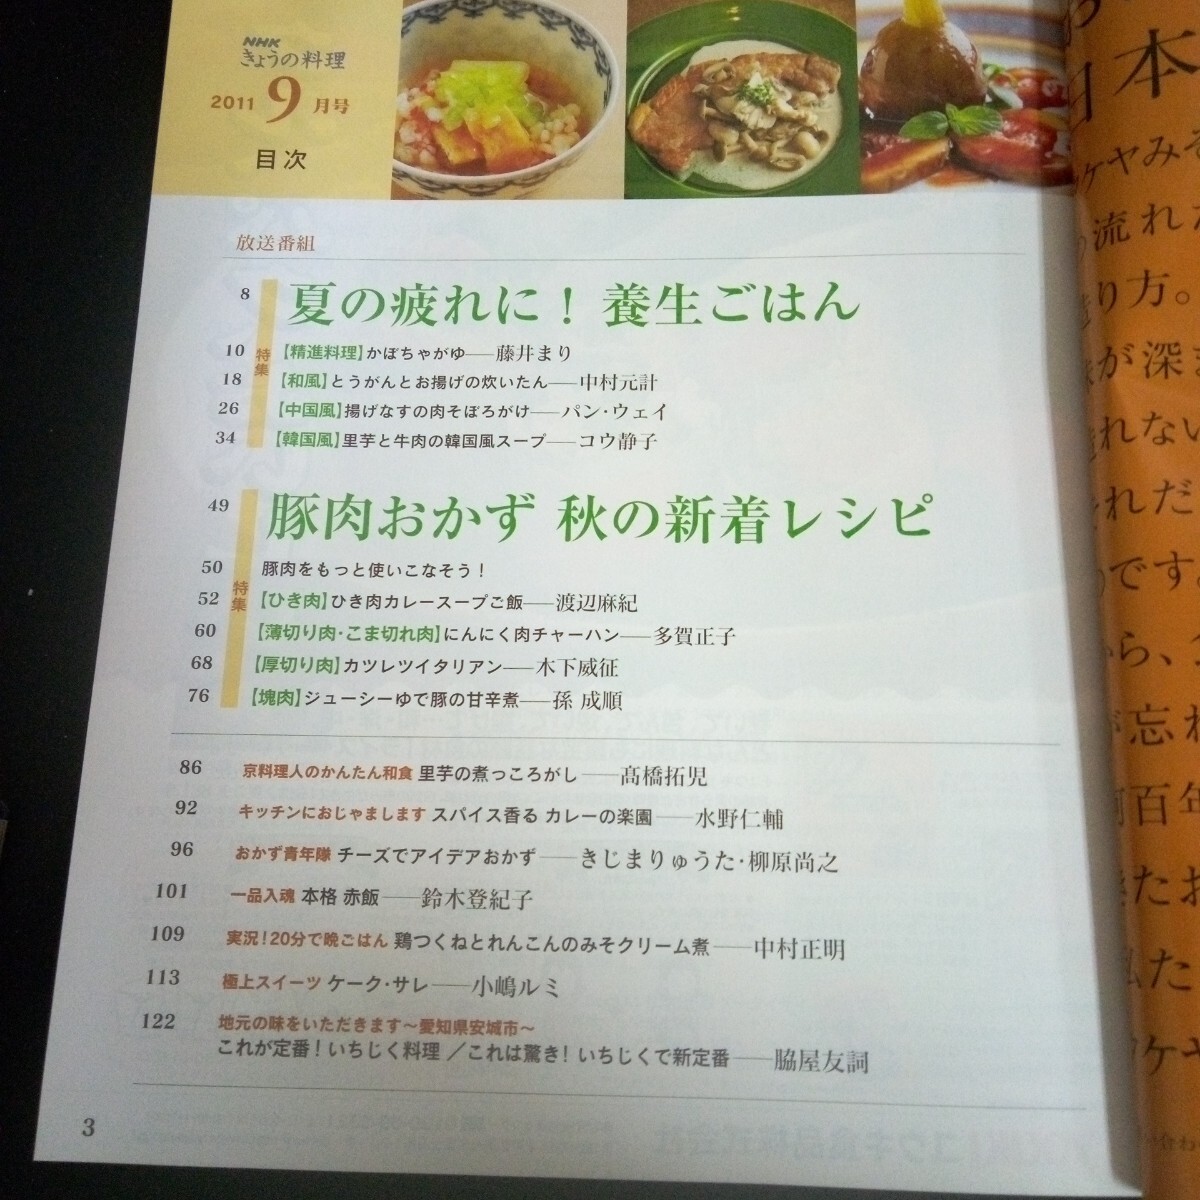 NHK
きょうの料理
2011 9 月号
目次
放送番組
8 夏の疲れに！ 養生ごはん
特集
10 【精進料理】かぼちゃがゆ──藤井まり
18 【和風】とうがんとお揚げの炊いたん──中村元計
26 【中国風】揚げなすの肉そぼろがけ──パン・ウェイ
34 【韓国風】里芋と牛肉の韓国風スープ──コウ静子
49 豚肉おかず 秋の新着レシピ
特集
50 豚肉をもっと使いこなそう！
52 【ひき肉】ひき肉カレースープご飯──渡辺麻紀
60 【薄切り肉・こま切れ肉】にんにく肉チャーハン──多賀正子
68 【厚切り肉】カツレツイタリアン──木下威征
76 【塊肉】ジューシーゆで豚の甘辛煮──孫 成順
86 京料理人のかんたん和食 里芋の煮っころがし──髙橋拓児
92 キッチンにおじゃまします スパイス香る カレーの楽園──水野仁輔
96 おかず青年隊 チーズでアイデアおかず──きじまりゅうた・柳原尚之
101 一品入魂 本格 赤飯──鈴木登紀子
109 実況！20分で晩ごはん 鶏つくねとれんこんのみそクリーム煮──中村正明
113 極上スイーツ ケーク・サレ──小嶋ルミ
122 地元の味をいただきます～愛知県安城市～
これが定番！いちじく料理 ／これは驚き！いちじくで新定番──脇屋友詞
3
日本
ケヤみそ
流れ
り方。
が深ま
れない
それだ
です
から、
忘れ
百年
きたお
私た
ケヤ